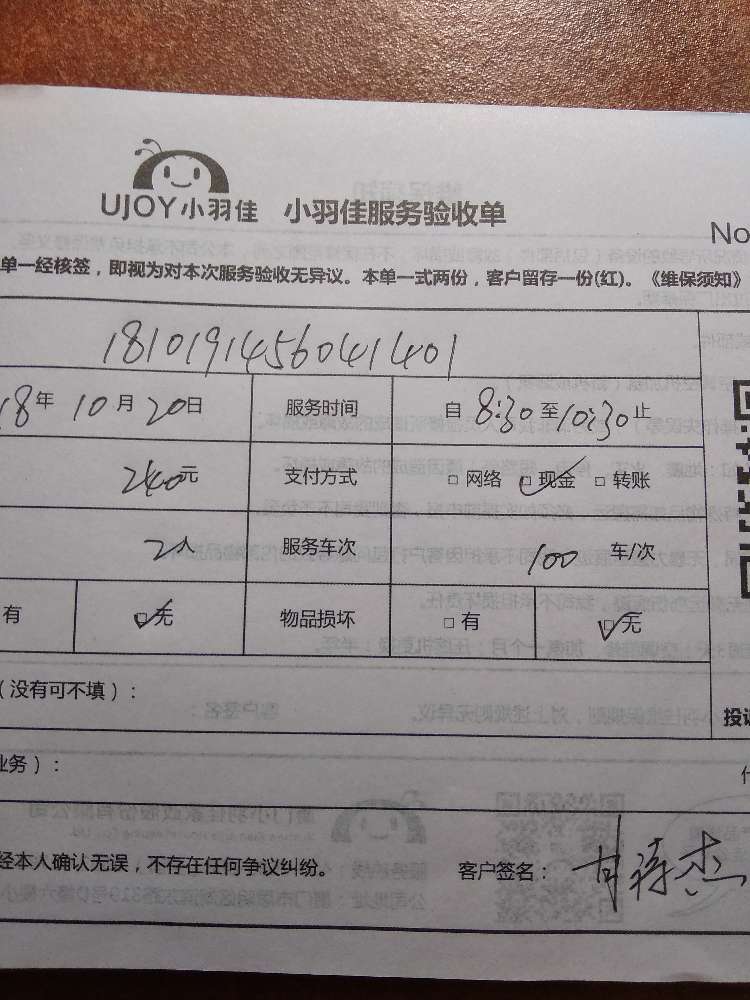 UJOY小羽佳 小羽佳服务验收单
No
单一经核签，即视为对本次服务验收无异议。本单一式两份，客户留存一份(红)。《维保须知》
1810191456041401
18年 10月 20日 服务时间 自 8:30 至 10:30 止
240元 支付方式 □ 网络 □ 现金 □ 转账
2人 服务车次 100 车/次
有 □ 无 物品损坏 □ 有 □ 无
（没有可不填）：
投诉
业务）：
经本人确认无误，不存在任何争议纠纷。 客户签名：甘涛杰